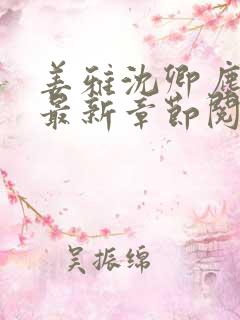 姜雅沈卿鹿
最新章节阅
吴振绵